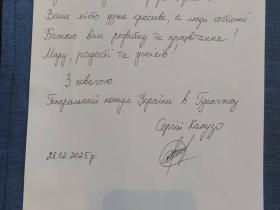 Ваше місто дуже красиве, а люди гостинні
Бажаю вам розвитку та процвітання!
Миру, радості та успіхів!
З повагою
Генеральний консул України в Гуанчжоу
Сергій
28.02.2025р.